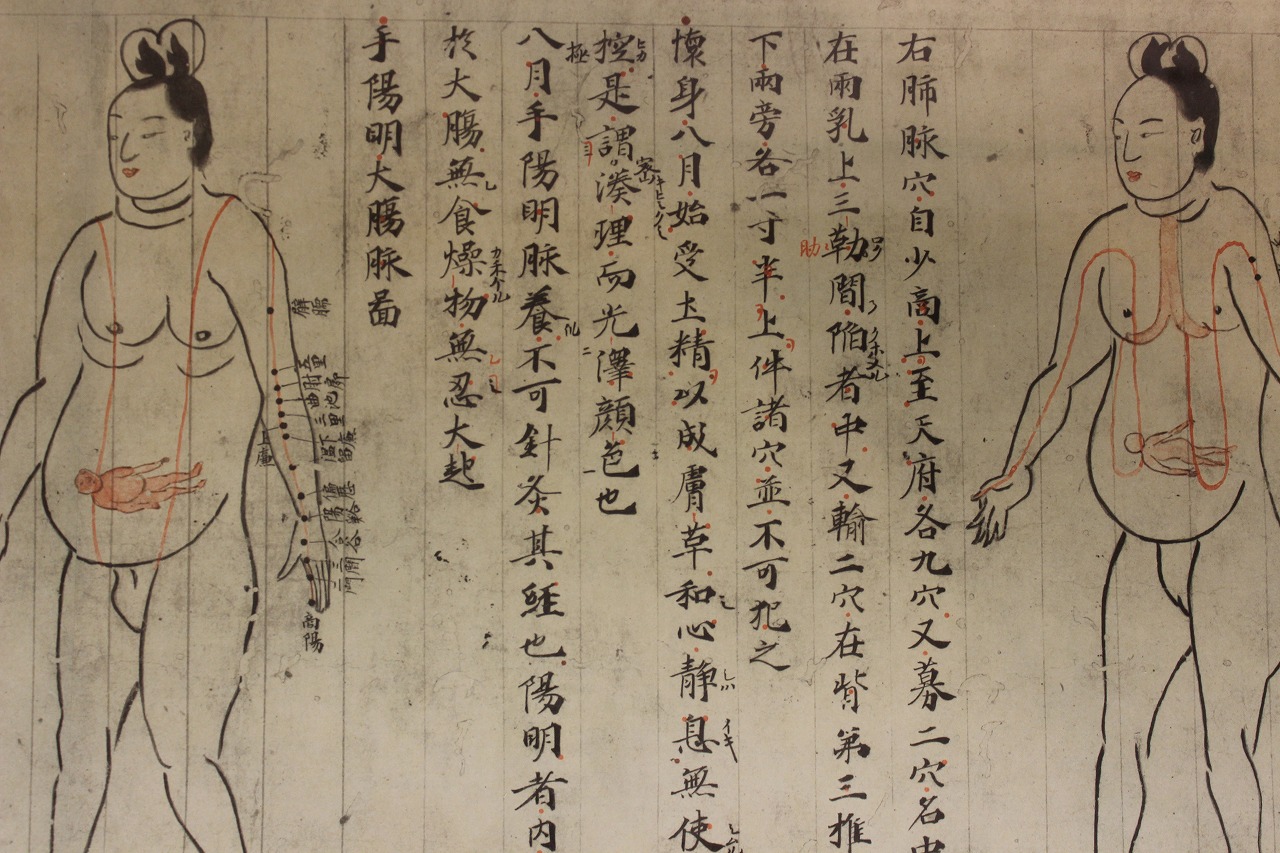 右肺脉穴自少商上至天府各九穴又募二穴名中
在兩乳上三勒間陷者中又輸二穴在背第三推
下兩旁各一寸半上件諸穴並不可犯之
懷身八月始受土精以成膚革和心静息無使
控是謂湊理而光澤顔色也
八月手陽明脉養不可針灸其經也陽明者内
於大腸無食燥物無忍大起
手陽明大腸脉啚
肋
極
密
臂臑
五里
肘
曲池
三里
上廉
下廉
温留
偏歴
陽谿
合谷
三間
二間
商陽